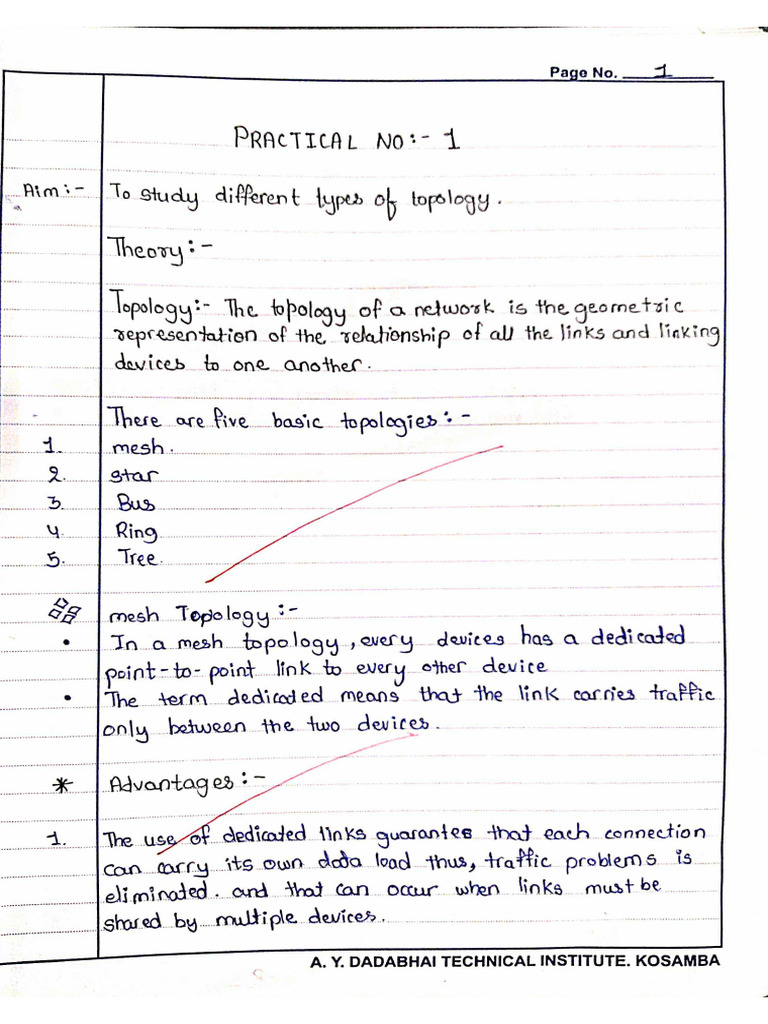 Page No. 1
PRACTICAL NO:- 1
Aim:- To study different types of topology.
Theory:-
Topology:- The topology of a network is the geometric
representation of the relationship of all the links and linking
devices to one another.
There are five basic topologies:-
1. mesh.
2. star
3. Bus
4. Ring
5. Tree.
mesh Topology:-
• In a mesh topology, every devices has a dedicated
point-to-point link to every other device
• The term dedicated means that the link carries traffic
only between the two devices.
* Advantages:-
1. The use of dedicated links guarantes that each connection
can carry its own data load thus, traffic problems is
eliminated. and that can occur when links must be
shared by multiple devices.
A. Y. DADABHAI TECHNICAL INSTITUTE. KOSAMBA